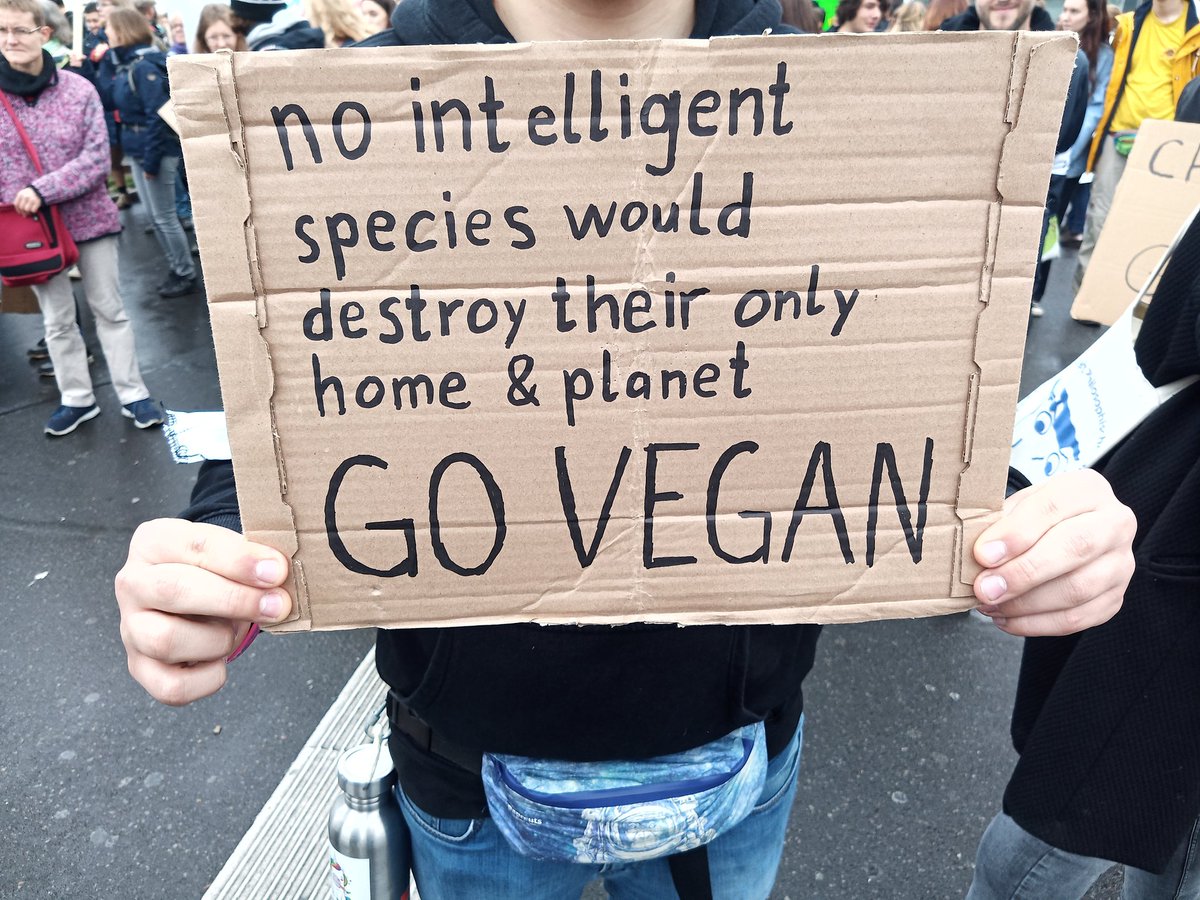 no intelligent
species would
destroy their only
home & planet
GO VEGAN